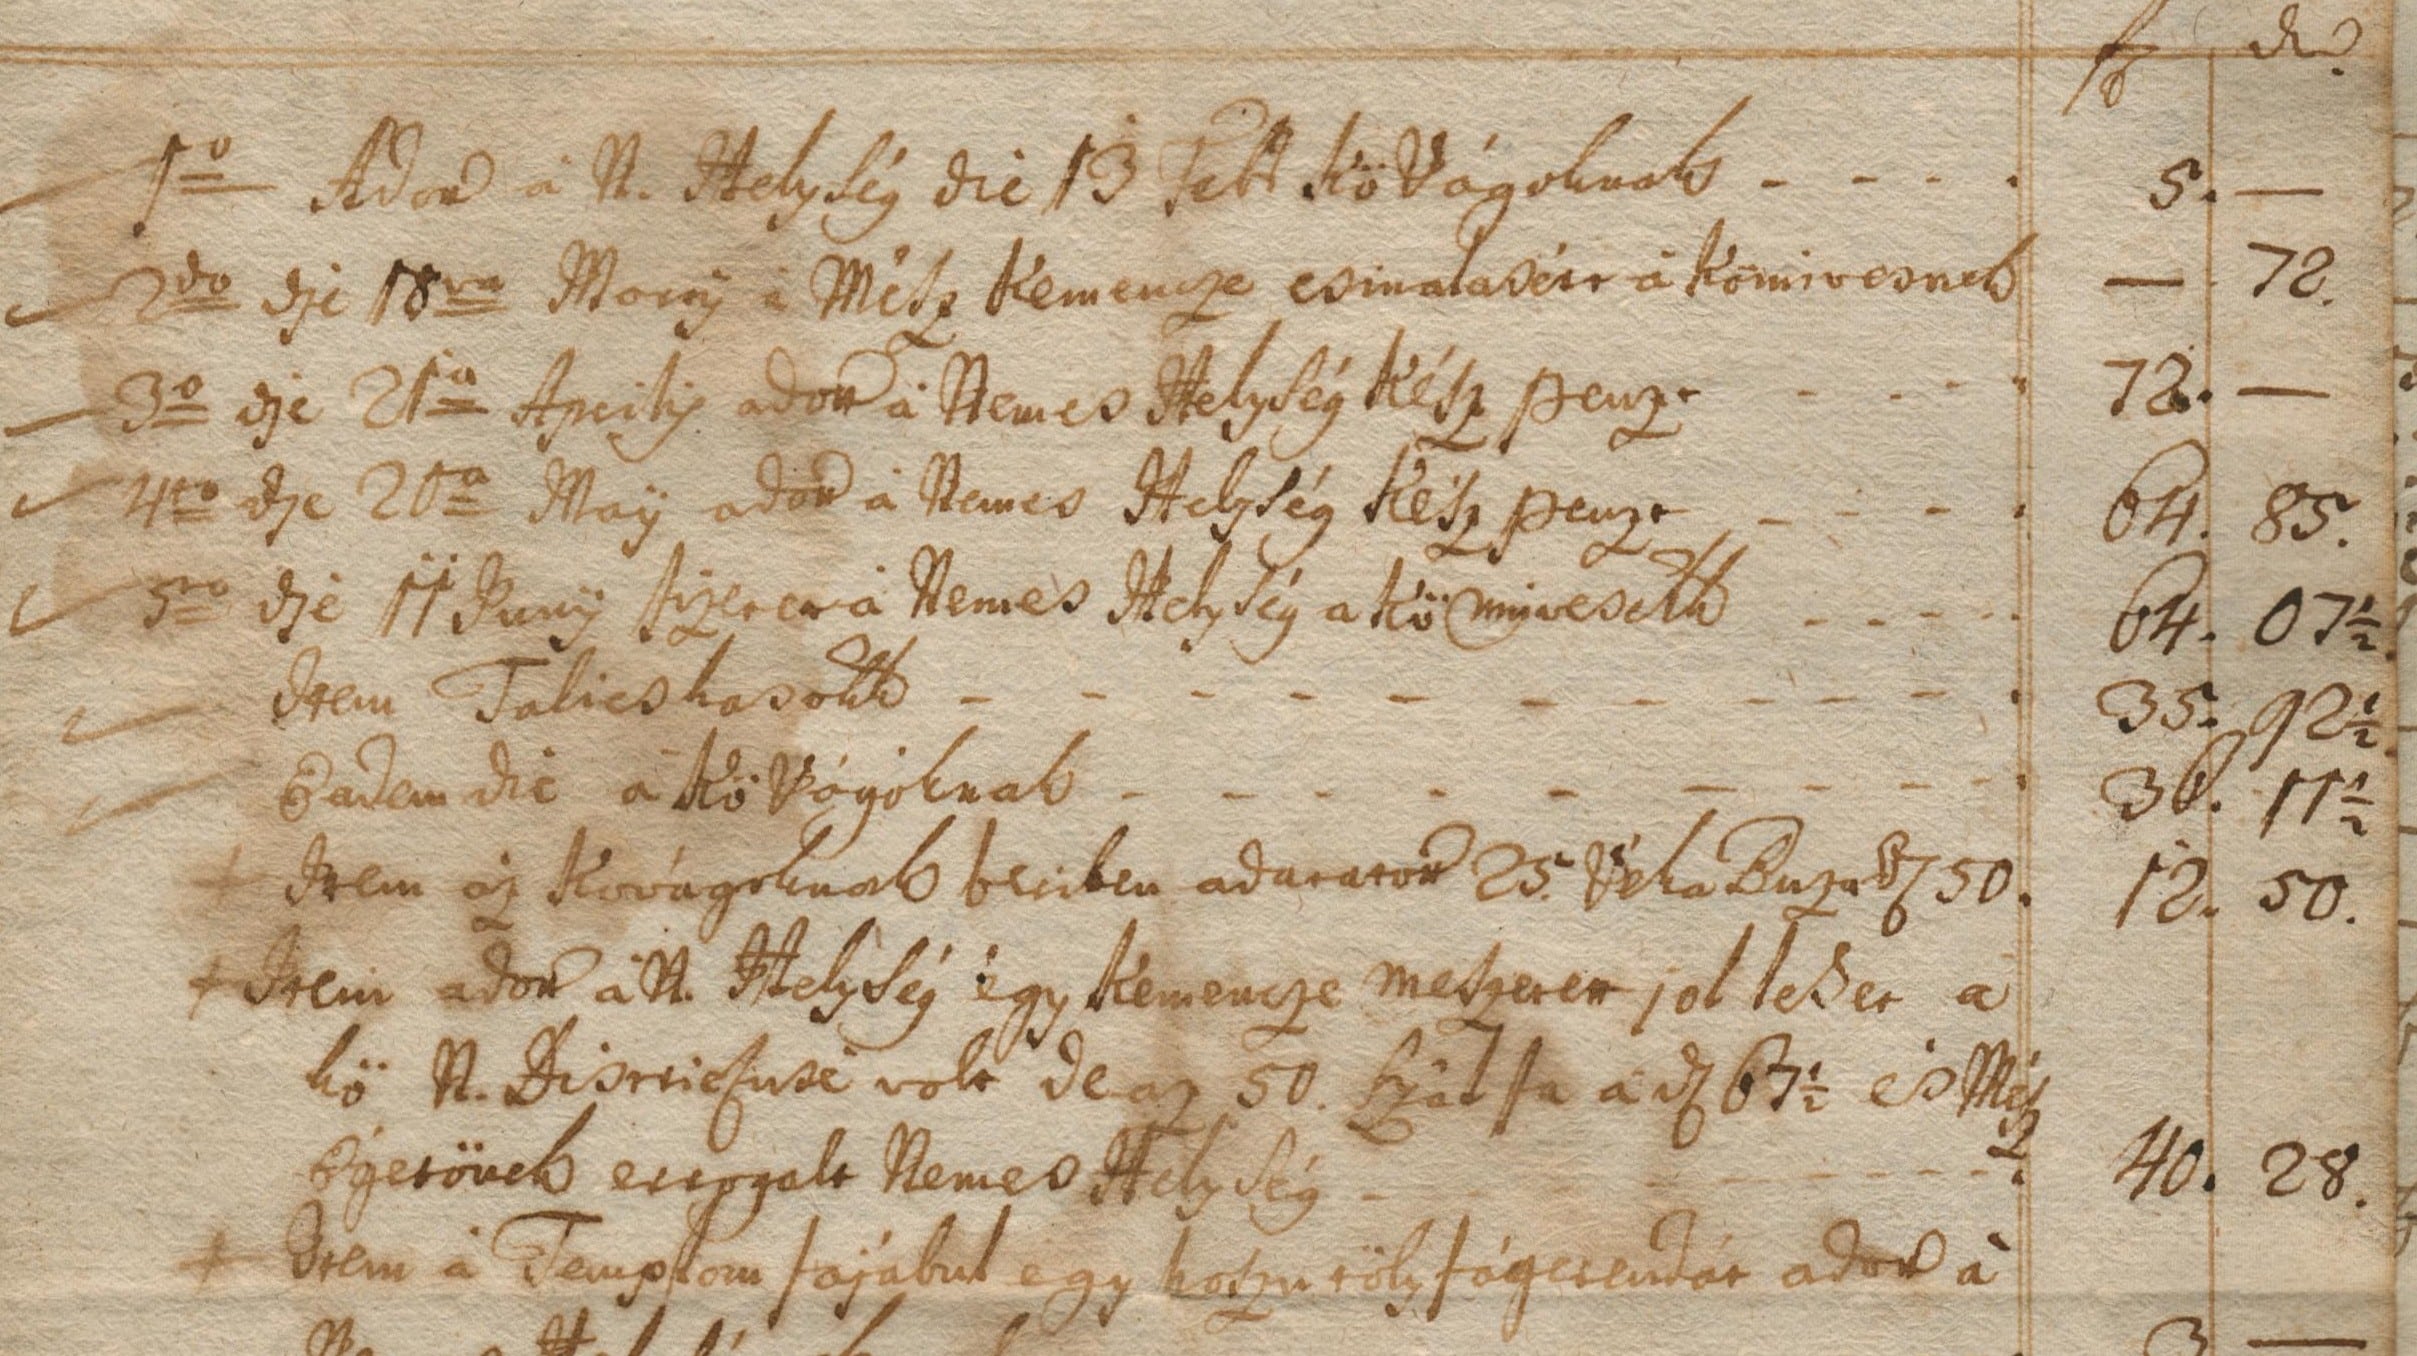 fl dr
1o Adott a N. Helység die 13 Febr Kö Vágoknak - - - - 5. —
2do dje 18va Marÿ a Mész Kemencze csinalasért a Kömivesnek — 72.
3o dje 21a Aprilis adott a Nemes Helység Kész penzt - - - - 72. —
4to dje 20a Maÿ adott a Nemes Helység Kész penzt - - - - 64. 85.
5to dje 11 Junÿ fizetett a Nemes Helység a Kö mivesekk - - - - 64. 07½
Item Talicskasokk - - - - - - - - - 35. 92½
Eadem die a Kö Vágoknak - - - - - - - - 36. 11½
Item az Kovágoknak beriben adatatott 25. Véka Buza d 50. 12. 50.
Item adott a N. Helység egy Kemencze meszetett jol lehet a
kö N. Districtusé volt de az 50. Szál fa a d 67½ és Mész
Égetönek Nemes Helység - - - - - - - 40. 28.
Item a Templom fajábul egy hoszu tölyfágerendát adott a
3 —